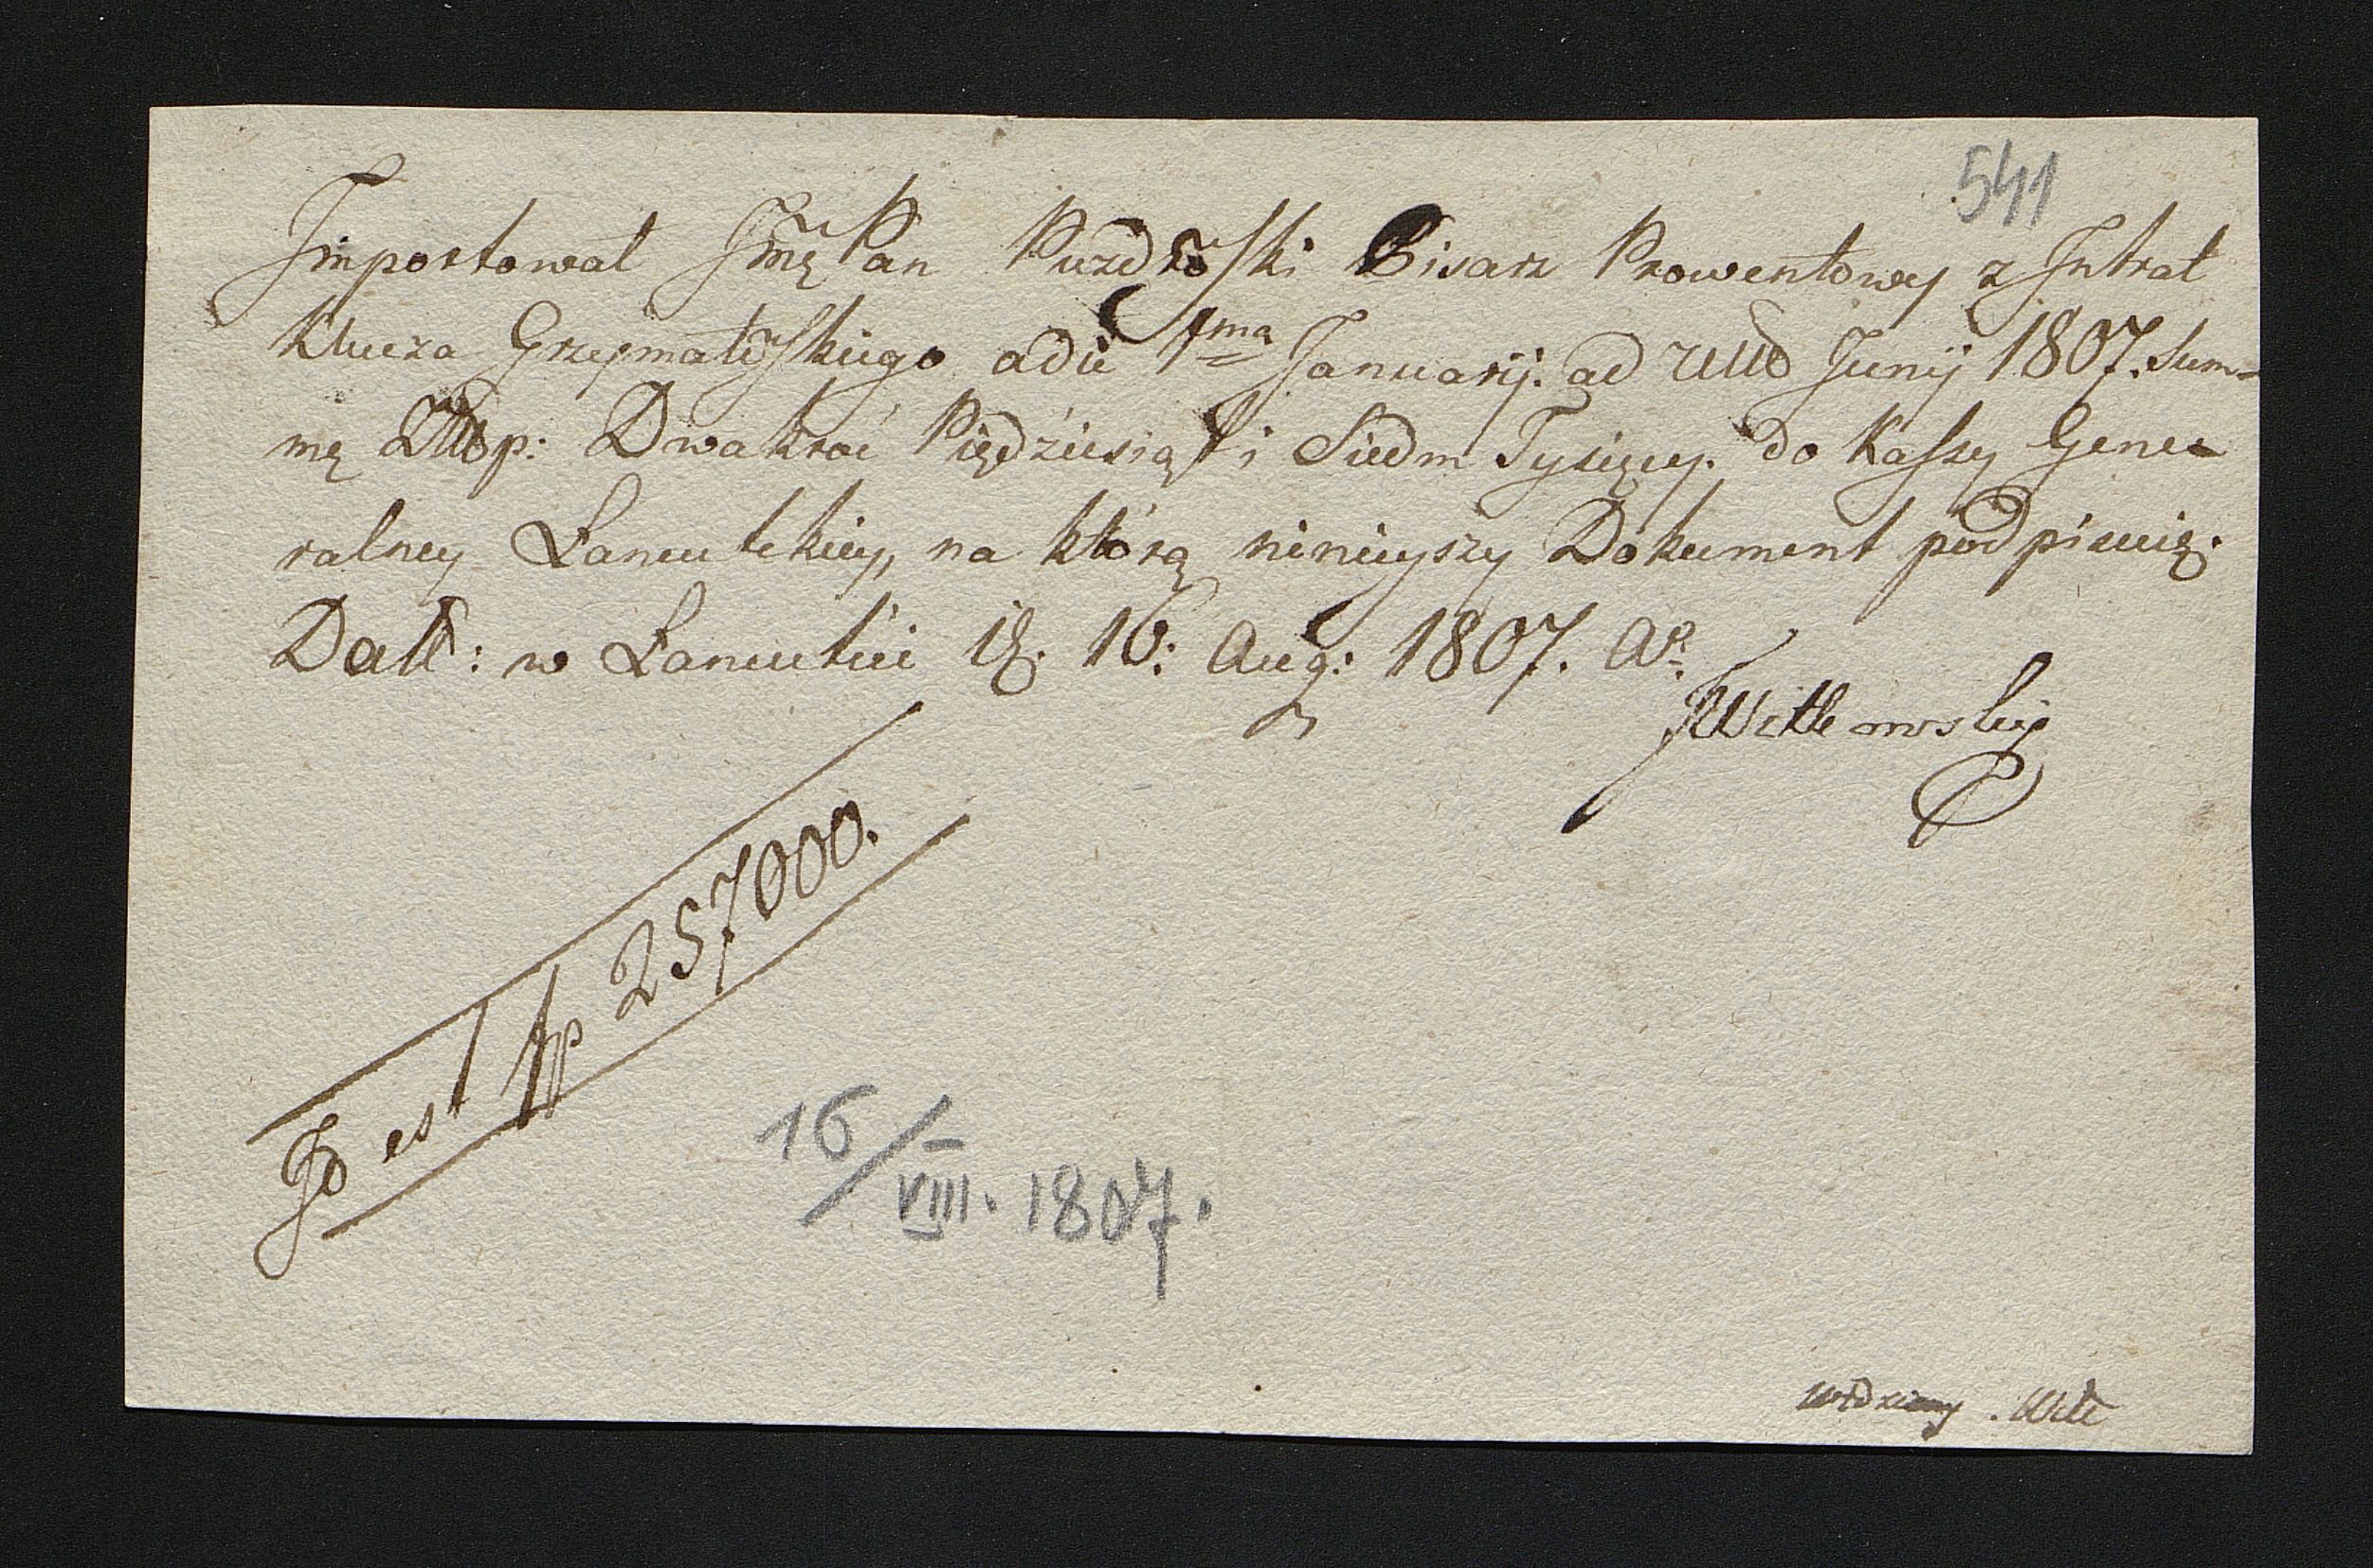 541
Importował Jmę Pan Puzdroſki Pisarz Prowentowy z Intrat
Klucza Grzymałoſkiego a die 1ma Januarij. ad Junij 1807. Sum-
mę Złłp: Dwakroć Piędziesiąt i Siedm Tysięcy. do Kaſsy Gene-
ralney Łancutckiey, na którą ninieyszy Dokument podpisuię.
Datt: w Łancutie 16: Aug: 1807. Ao.
JWitkowskij
Id est fp 257000.
16/VIII. 1807.